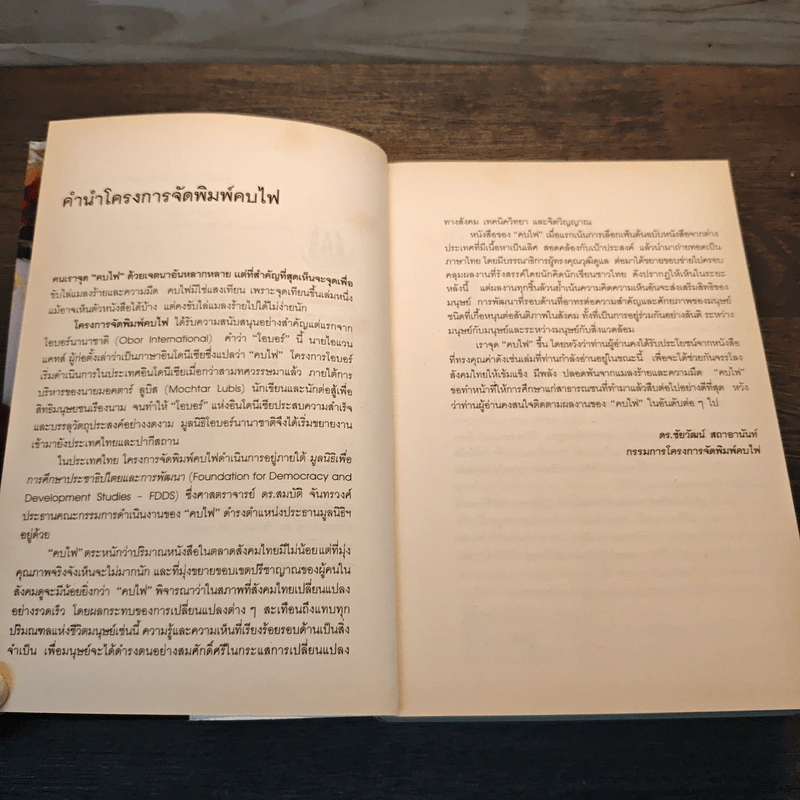 คำนำโครงการจัดพิมพ์คบไฟ
คนเราจุด “คบไฟ” ด้วยเจตนาอันหลากหลาย แต่ที่สำคัญที่สุดเห็นจะจุดเพื่อ
ขับไล่แมลงร้ายและความมืด คบไฟมิใช่แสงเทียน เพราะจุดเทียนขึ้นเล่มหนึ่ง
แม้อาจเห็นตัวหนังสือได้บ้าง แต่คงขับไล่แมลงร้ายไปได้ไม่ง่ายนัก
โครงการจัดพิมพ์คบไฟ ได้รับความสนับสนุนอย่างสำคัญแต่แรกจาก
โอบอร์นานาชาติ (Obor International) คำว่า “โอบอร์” นี้ นายไอแวน
แคทส์ ผู้ก่อตั้งเล่าว่าเป็นภาษาอินโดนีเซียซึ่งแปลว่า “คบไฟ” โครงการโอบอร์
เริ่มดำเนินการในประเทศอินโดนีเซียเมื่อกว่าสามทศวรรษมาแล้ว ภายใต้การ
บริหารของนายมอคตาร์ ลูบิส (Mochtar Lubis) นักเขียนและนักต่อสู้เพื่อ
สิทธิมนุษยชนเรืองนาม จนทำให้ “โอบอร์” แห่งอินโดนีเซียประสบความสำเร็จ
และบรรลุวัตถุประสงค์อย่างงดงาม มูลนิธิโอบอร์นานาชาติจึงได้เริ่มขยายงาน
เข้ามายังประเทศไทยและปากีสถาน
ในประเทศไทย โครงการจัดพิมพ์คบไฟดำเนินการอยู่ภายใต้ มูลนิธิเพื่อ
การศึกษาประชาธิปไตยและการพัฒนา (Foundation for Democracy and
Development Studies – FDDS) ซึ่งศาสตราจารย์ ดร.สมบัติ จันทรวงศ์
ประธานคณะกรรมการดำเนินงานของ “คบไฟ” ดำรงตำแหน่งประธานมูลนิธิฯ
อยู่ด้วย
“คบไฟ” ตระหนักว่าปริมาณหนังสือในตลาดสังคมไทยมีไม่น้อยแต่ที่มุ่ง
คุณภาพจริงจังเห็นจะไม่มากนัก และที่มุ่งขยายขอบเขตปรีชาญาณของผู้คนใน
สังคมดูจะมีน้อยยิ่งกว่า “คบไฟ” พิจารณาว่าในสภาพที่สังคมไทยเปลี่ยนแปลง
อย่างรวดเร็ว โดยผลกระทบของการเปลี่ยนแปลงต่าง ๆ สะเทือนถึงแทบทุก
ปริมณฑลแห่งชีวิตมนุษย์เช่นนี้ ความรู้และความเห็นที่เรียงร้อยรอบด้านเป็นสิ่ง
จำเป็น เพื่อมนุษย์จะได้ดำรงตนอย่างสมศักดิ์ศรีในกระแสการเปลี่ยนแปลง
ทางสังคม เทคนิควิทยา และจิตวิญญาณ
หนังสือของ “คบไฟ” เมื่อแรกเน้นการเลือกเฟ้นต้นฉบับหนังสือจากต่าง
ประเทศที่มีเนื้อหาเป็นเลิศ สอดคล้องกับเป้าประสงค์ แล้วนำมาถ่ายทอดเป็น
ภาษาไทย โดยมีบรรณาธิการผู้ทรงคุณวุฒิดูแล ต่อมาได้ขยายขอบข่ายไปครอบ
คลุมผลงานที่รังสรรค์โดยนักคิดนักเขียนชาวไทย ดังปรากฏให้เห็นในระยะ
หลังนี้ แต่ผลงานทุกชิ้นล้วนย้ำเน้นความคิดความเห็นอันจะส่งเสริมสิทธิของ
มนุษย์ การพัฒนาที่รอบด้านที่อาทรต่อความสำคัญและศักยภาพของมนุษย์
ชนิดที่เกื้อหนุนต่อสันติภาพในสังคม ทั้งที่เป็นการอยู่ร่วมกันอย่างสันติ ระหว่าง
มนุษย์กับมนุษย์และระหว่างมนุษย์กับสิ่งแวดล้อม
เราจุด “คบไฟ” ขึ้น โดยหวังว่าท่านผู้อ่านคงได้รับประโยชน์จากหนังสือ
ที่ทรงคุณค่าดังเช่นเล่มที่ท่านกำลังอ่านอยู่ในขณะนี้ เพื่อจะได้ช่วยกันจรรโลง
สังคมไทยให้เข้มแข็ง มีพลัง ปลอดพ้นจากแมลงร้ายและความมืด “คบไฟ”
ขอทำหน้าที่ให้การศึกษาแก่สาธารณชนที่ทำมาแล้วสืบต่อไปอย่างดีที่สุด หวัง
ว่าท่านผู้อ่านคงสนใจติดตามผลงานของ “คบไฟ” ในอันดับต่อ ๆ ไป
ดร.ชัยวัฒน์ สถาอานันท์
กรรมการโครงการจัดพิมพ์คบไฟ